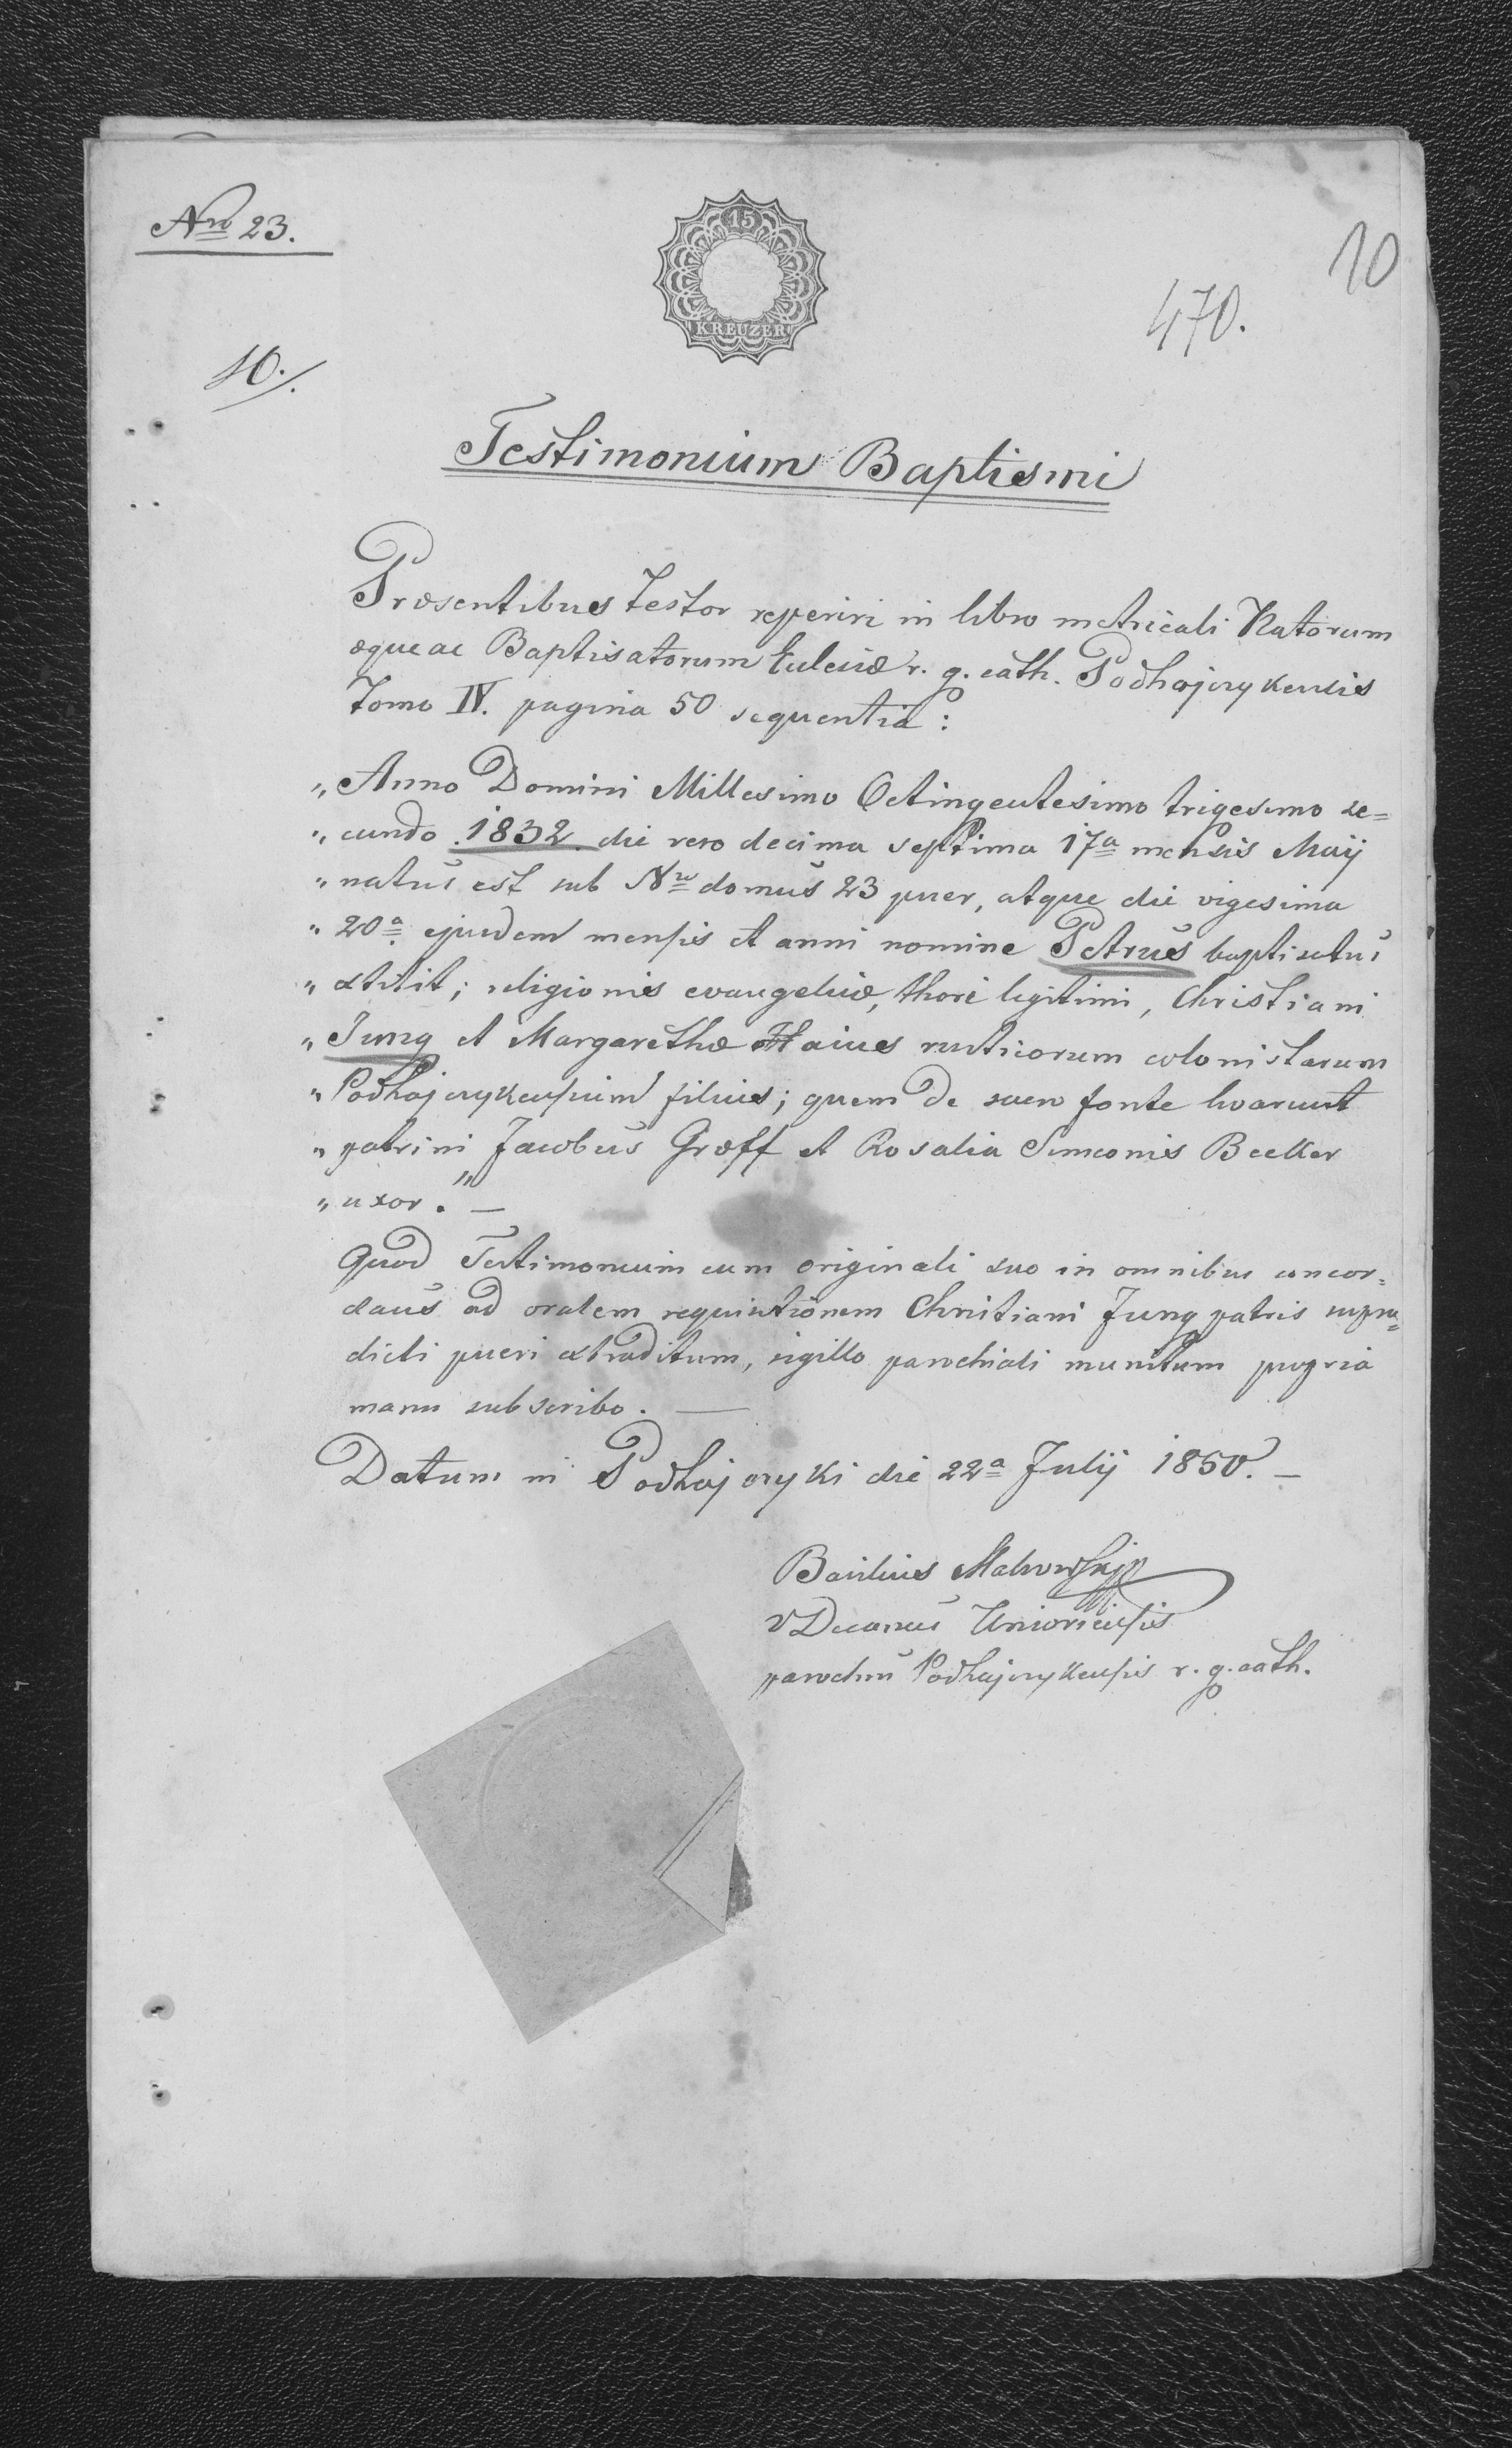 Nro 23.
15
KREUZER
10
470.
10./.
Testimonium Baptismi
Præsentibus testor reperiri in libro metricali Natorum
æque ac Baptisatorum Eclesiæ r. g. cath. Podhajczykensis
Tomo IV. pagina 50 sequentia:
„Anno Domini Millesimo Octingentesimo trigesimo se=
„cundo 1832. die vero decima septima 17a mensis Maij
„natus est sub Nro domus 23 puer, atque die vigesima
„20a ejusdem mensis et anni nomine Petrus baptisatus
„extitit; religionis evangelicæ, thori legitimi, Christiani
„Jung et Margarethæ rusticorum colonistarum
„Podhajczykensium filius; quem de sacro fonte levarunt
„patrini Jacobus Græff et Rosalia Simeonis Becker
„uxor." —
Quod Testimonium cum originali suo in omnibus concor=
dans ad oralem requisitionem Christiani Jung patris supra=
dicti pueri extraditum, sigillo parochiali munitum propria
manu subscribo. —
Datum in Podhajczyki die 22a Julij 1850. —
Basilius
vDecanus
parochus Podhajczykensis r. g. cath.